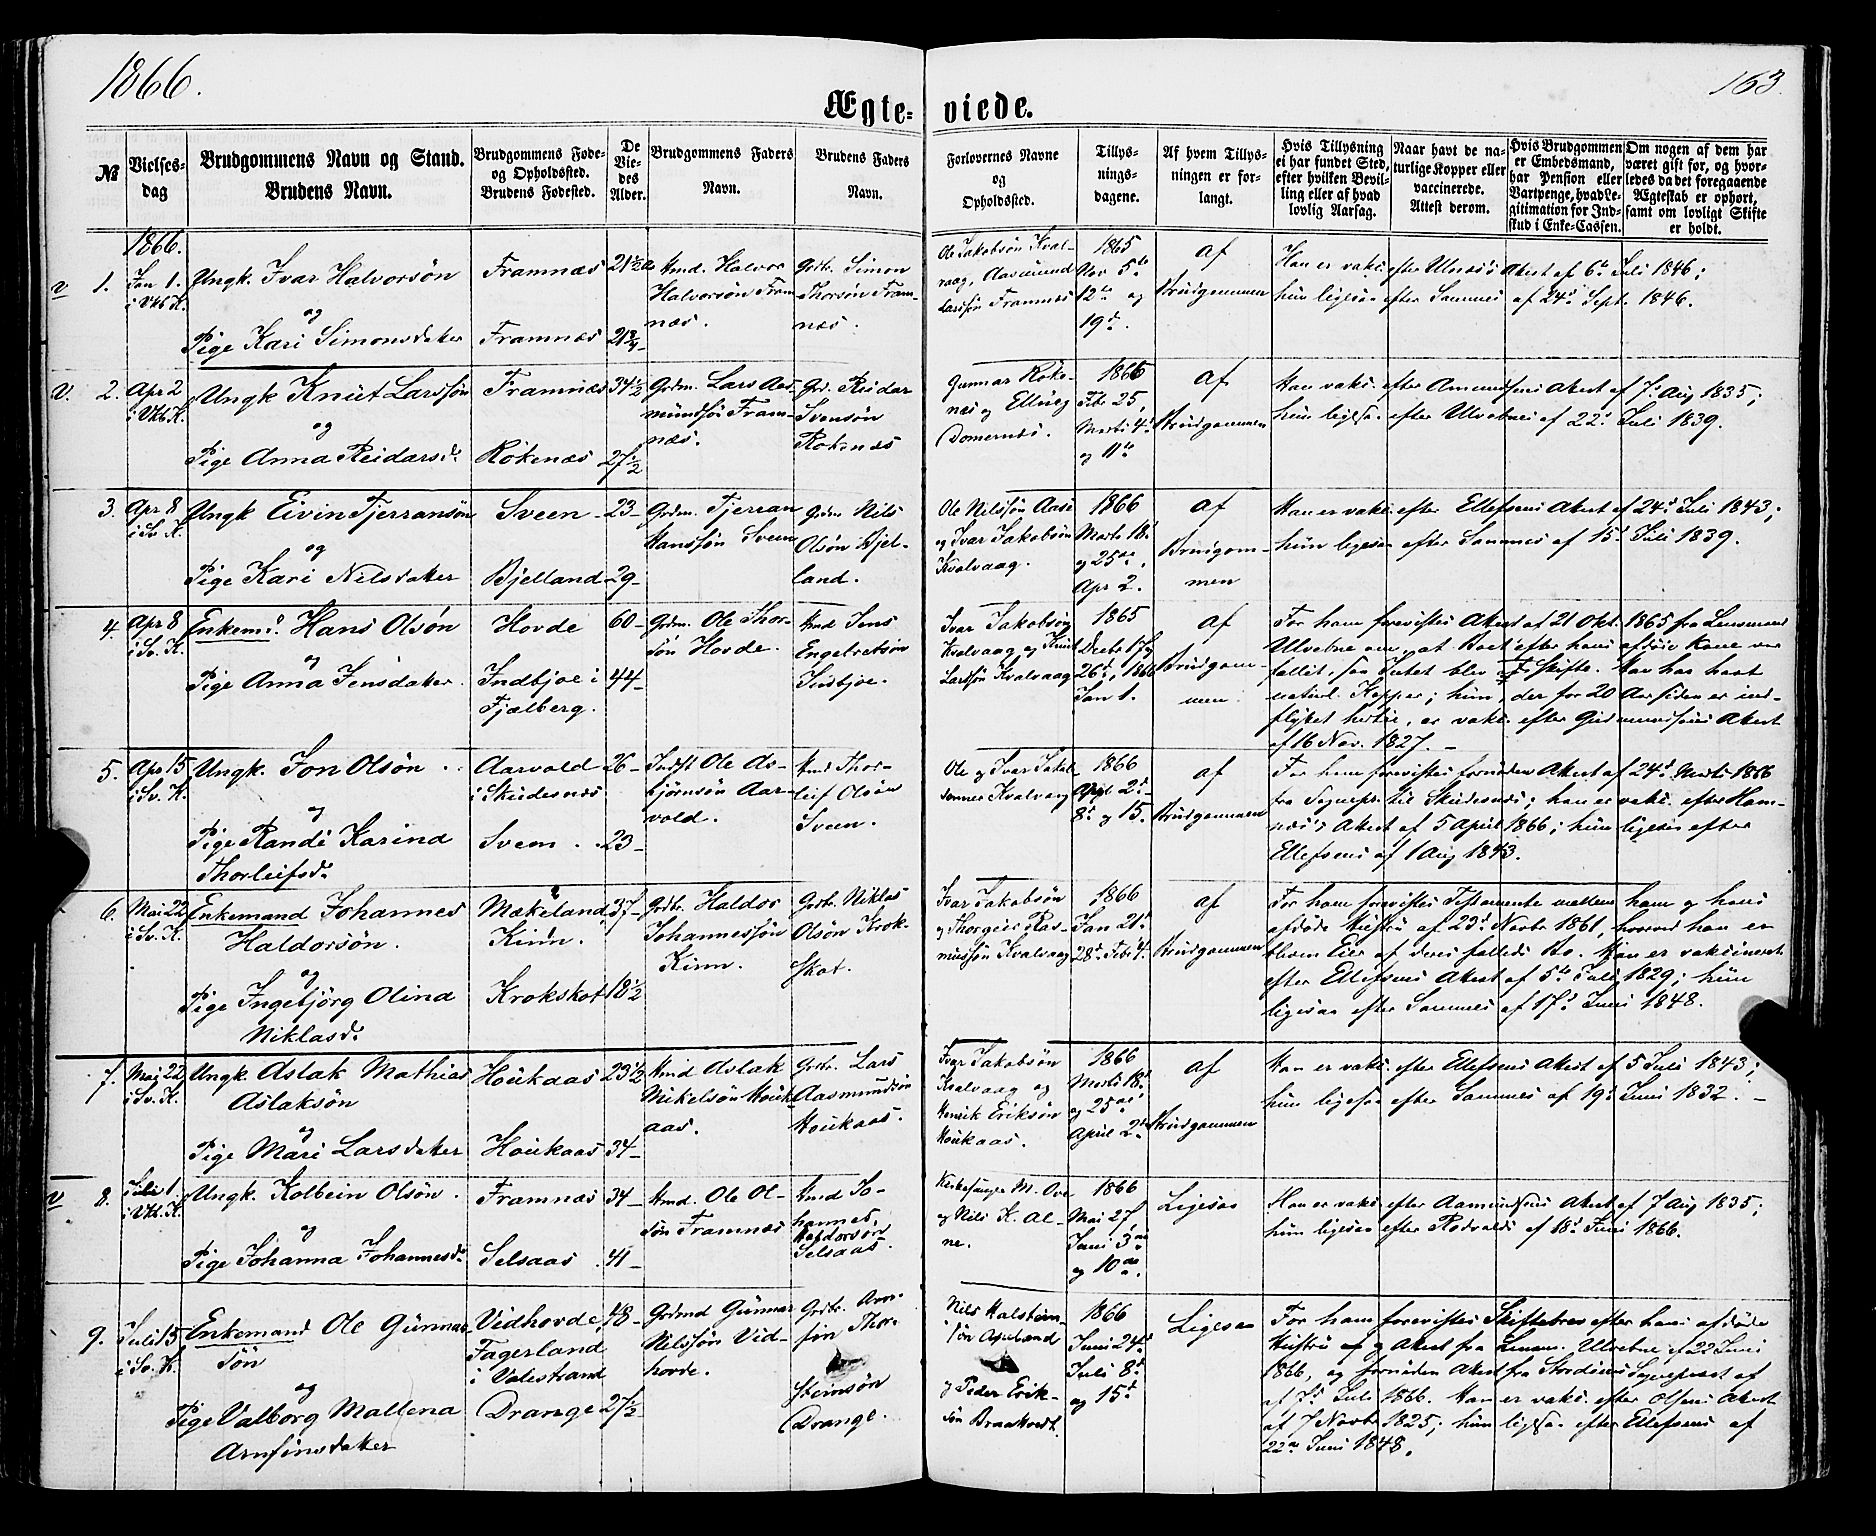 1866.
163.
Ægteviede.
№
Vielsesdag
Brudgommens Navn og Stand.
Brudens Navn.
Brudgommens Føde-
og Opholdssted.
Brudens Fødested.
De
Vie-
des
Alder.
Brudgommens Faders
Navn.
Brudens Faders
Navn.
Forlovernes Navne
og
Opholdssted.
Tillys-
nings-
dagene.
Af hvem Tillys-
ningen er for-
langt.
Hvis Tillysning
ei har fundet Sted,
efter hvilken Bevil-
ling eller af hvad
lovlig Aarsag.
Naar havt de na-
turlige Kopper eller
vaccinerede.
Attest derom.
Hvis Brudgommen
er Embedsmand,
har Pension eller
Vartpenge, hvad Le-
gitimation for Ind-
skud i Enke-Cassen.
Om nogen af dem har
været gift før, og hvor-
ledes da det foregaaende
Ægteskab er ophørt,
samt om lovligt Skifte
er holdt.
1866.
v 1.
Jan 1.
i Vkb K.
Ungk. Ivar Halvorsön
og
Pige Kari Simonsdater
Framnæs
Framnæs
21½
21¾
Hmd. Halvor
Halvorsön Fram
næs.
Grbr. Simon
Thorsön Fram-
næs.
Ole Jakobsön Kval-
vaag, Aasmund
Larssön Framnæs
1865
Nov 5te
12te og
19d.
af
Brudgommen
Han er vaks. efter Ulvnæs's Attest af 6te Juli 1846;
hun ligesaa efter Sammes af 24d Sept. 1846.
V. 2.
Apr 2
i Vkb K.
Ungk Knut Larssön
og
Pige Anna Reidarsd.
Framnæs
Rökenæs
34½
27½
Grdm. Lars Aas-
mundssön Fram-
næs.
Grd. Reidar
Svensön
Rökenæs
Gunnar Röke-
næs og Elling
Domersnæs.
1866
Febr 25,
Marts 4d
og 11te
af
Brudgommen
Han vaks. efter Amundsens Attest af 7d Aug 1835;
hun ligesaa efter Ulvebnes af 22d Juli 1839.
3.
Apr 8
i Sv. K.
Ungk Eivin Tjerransön
og
Pige Kari Nilsdater
Sveen
Bjelland
23
29
Grdm. Tjerran
Hanssön Sveen
Grdm Nils
Olsön Bjel-
land.
Ole Nilssön Aase
og Ivar Jakobsön
Kvalvaag.
1866
Marts 18d
og 25de,
Apr 2.
af
Brudgom-
men
Han er vaks. efter Ellefsens Attest af 24d Juli 1843;
hun ligesaa efter Sammes af 15d Juli 1839.
4.
Apr 8
i Sv. K.
Enkemd. Hans Olsön
og
Pige Anna Jensdater
Hovde
Indbjoe i
Fjælberg.
60
44
Grdm. Ole Thor-
sön Hovde.
Hmd Jens
Engelretsön
Indbjoe.
Ivar Jakobsön
Kvalvaag og Knut
Larssön Kvalvaag
1865
Decbr 17 og
26d, 1866
Jan 1.
af
Brudgom-
men
For ham forevistes Attest af 21 Okt. 1865 fra Lensmand
Ulvebne om, at Boet efter hans afdøde Kone var
fallit, saa Intet blev at skifte. Han har havt
naturl. Kopper; hun, der for 20 Aar siden er ind-
flyttet hertil, er vaks. efter Gudmundsens Attest
af 16 Nov. 1827.
5.
Apr 15
i Sv. K.
Ungk. Jon Olsön
og
Pige Randi Karina
Thorleifsd.
Aarvold
i Skudesnæs
Sveen
26
23
Indst Ole As-
bjørnsön Aar-
vold.
Hmd Thor-
leif Olsön
Sveen.
Ole og Ivar Jakob
sønner Kvalvaag
1866
April 2d
8d og 15.
af
Brudgommen
For ham forevistes fornøden Attest af 24d Marts 1866
fra Sognepr. til Skudesnæs; han er vaks. efter Ham-
næs's Attest af 5 April 1866; hun ligesaa efter
Ellefsens af 1 Aug 1843.
6.
Mai 22
i Sv. K.
Enkemand Johannes
Haldorsön.
og
Pige Ingebjörg Olina
Niklasd.
Mækeland,
Kinn.
Krokskot
37
18½
Grdbr. Haldor
Johannessön
Kinn.
Grbr. Niklas
Olsön Krok-
skot.
Ivar Jakobsön
og Thorgeir Ras-
mussön Kvalvaag
1866
Jan 21d
28d Febr 4.
af
Brudgommen
For ham forevistes Testamente mellem ham og hans
afdøde Hustru af 23d Novbr 1861, hvorved han er
bleven Eier af deres fælleds Bo. Han er vaksineret
efter Ellefsens Attest af 5te Juli 1829; hun
ligesaa efter Sammes af 17d Juni 1848.
7.
Mai 22
i Sv. K.
Ungk. Aslak Mathias
Aslaksön
og
Pige Mari Larsdater
Houkaas
Houkaas
23½
34
Hmd Aslak
Mikelsön Houk-
aas.
Grbr. Lars
Aasmundsön
Houkaas.
Ivar Jakobsön
Kvalvaag og
Henrik Eriksön
Houkaas.
1866
Marts 18d
og 25de
April 2d
af
Brudgommen
Han er vaks. efter Ellefsens Attest af 5 Juli 1843;
hun ligesaa efter Sammes af 19d Juni 1832.
V 8.
Juli 1
i Vkb. K.
Ungk. Kolbein Olsön.
og
Pige Johanna Johannesd.
Framnæs
Selsaas
34
41
Hmd. Ole Ol-
sön Framnæs
Hmd Jo-
hannes
Haldorsön
Selsaas.
Kirkesanger M. Ove
og Nils K. Al-
ne.
1866
Mai 27,
Juni 3de
og 10de.
Ligesaa
Han er vaks. efter Aamundsens Attest af 7 Aug 1835;
hun ligesaa efter Rødvalds af 18d Juni 1866.
9.
Juli 15
i Sv. K.
Enkemand Ole Gunnar-
sön
og
Pige Valborg Mallena
Arnfinsdater
Vidhovde,
Fagerland
i Valestrand
Drange
48
27½
Grdmd Gunnar
Nilssön Vid-
hovde.
Grdbr. Arn-
fin Thor-
steinsön
Drange.
Nils Halstein-
sön Apeland
og Peder Erik-
sön Braatvedt.
1866
Juni 24d
Juli 8d
og 15d
Ligesaa
For ham forevistes Skiftebrev efter hans afdøde
Hustru af og Attest fra Lensm. Ulvebne af 22 Juni
1866, og fornøden Attest fra Stordøens Sognepræst af
af 7d Juli 1866. Han er vaks. efter Olsens Attest
af 7 Novbr 1825; hun ligesaa efter Ellefsens af
22de Juni 1848.